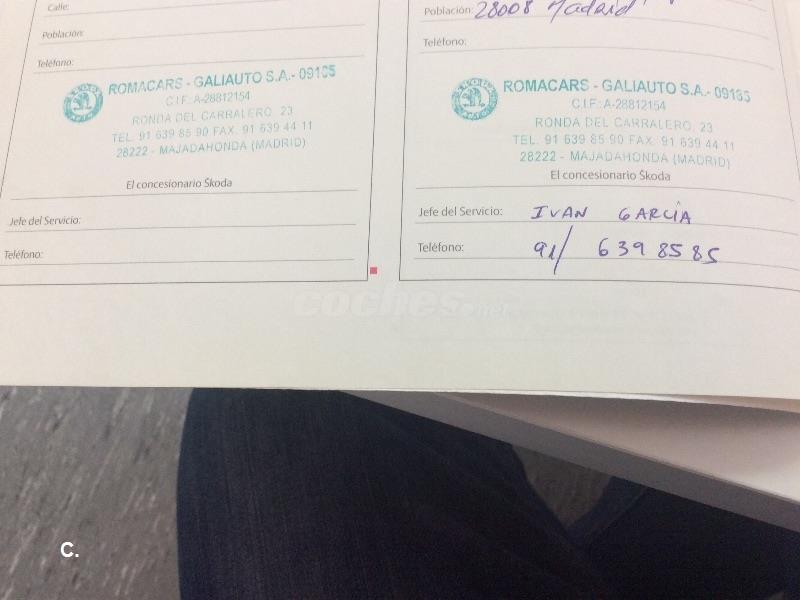 Calle:
Población:
Teléfono:
ROMACARS - GALIAUTO S.A.- 09185
C.I.F.: A-28812154
RONDA DEL CARRALERO, 23
TEL. 91 639 85 90 FAX. 91 639 44 11
28222 - MAJADAHONDA (MADRID)
El concesionario Škoda
Jefe del Servicio:
Teléfono:
Población: 28008 Madrid
Teléfono:
ROMACARS - GALIAUTO S.A.- 09185
C.I.F.: A-28812154
RONDA DEL CARRALERO, 23
TEL. 91 639 85 90 FAX. 91 639 44 11
28222 - MAJADAHONDA (MADRID)
El concesionario Škoda
Jefe del Servicio: IVAN GARCÍA
Teléfono: 91/ 639 85 85
coches.net
C.